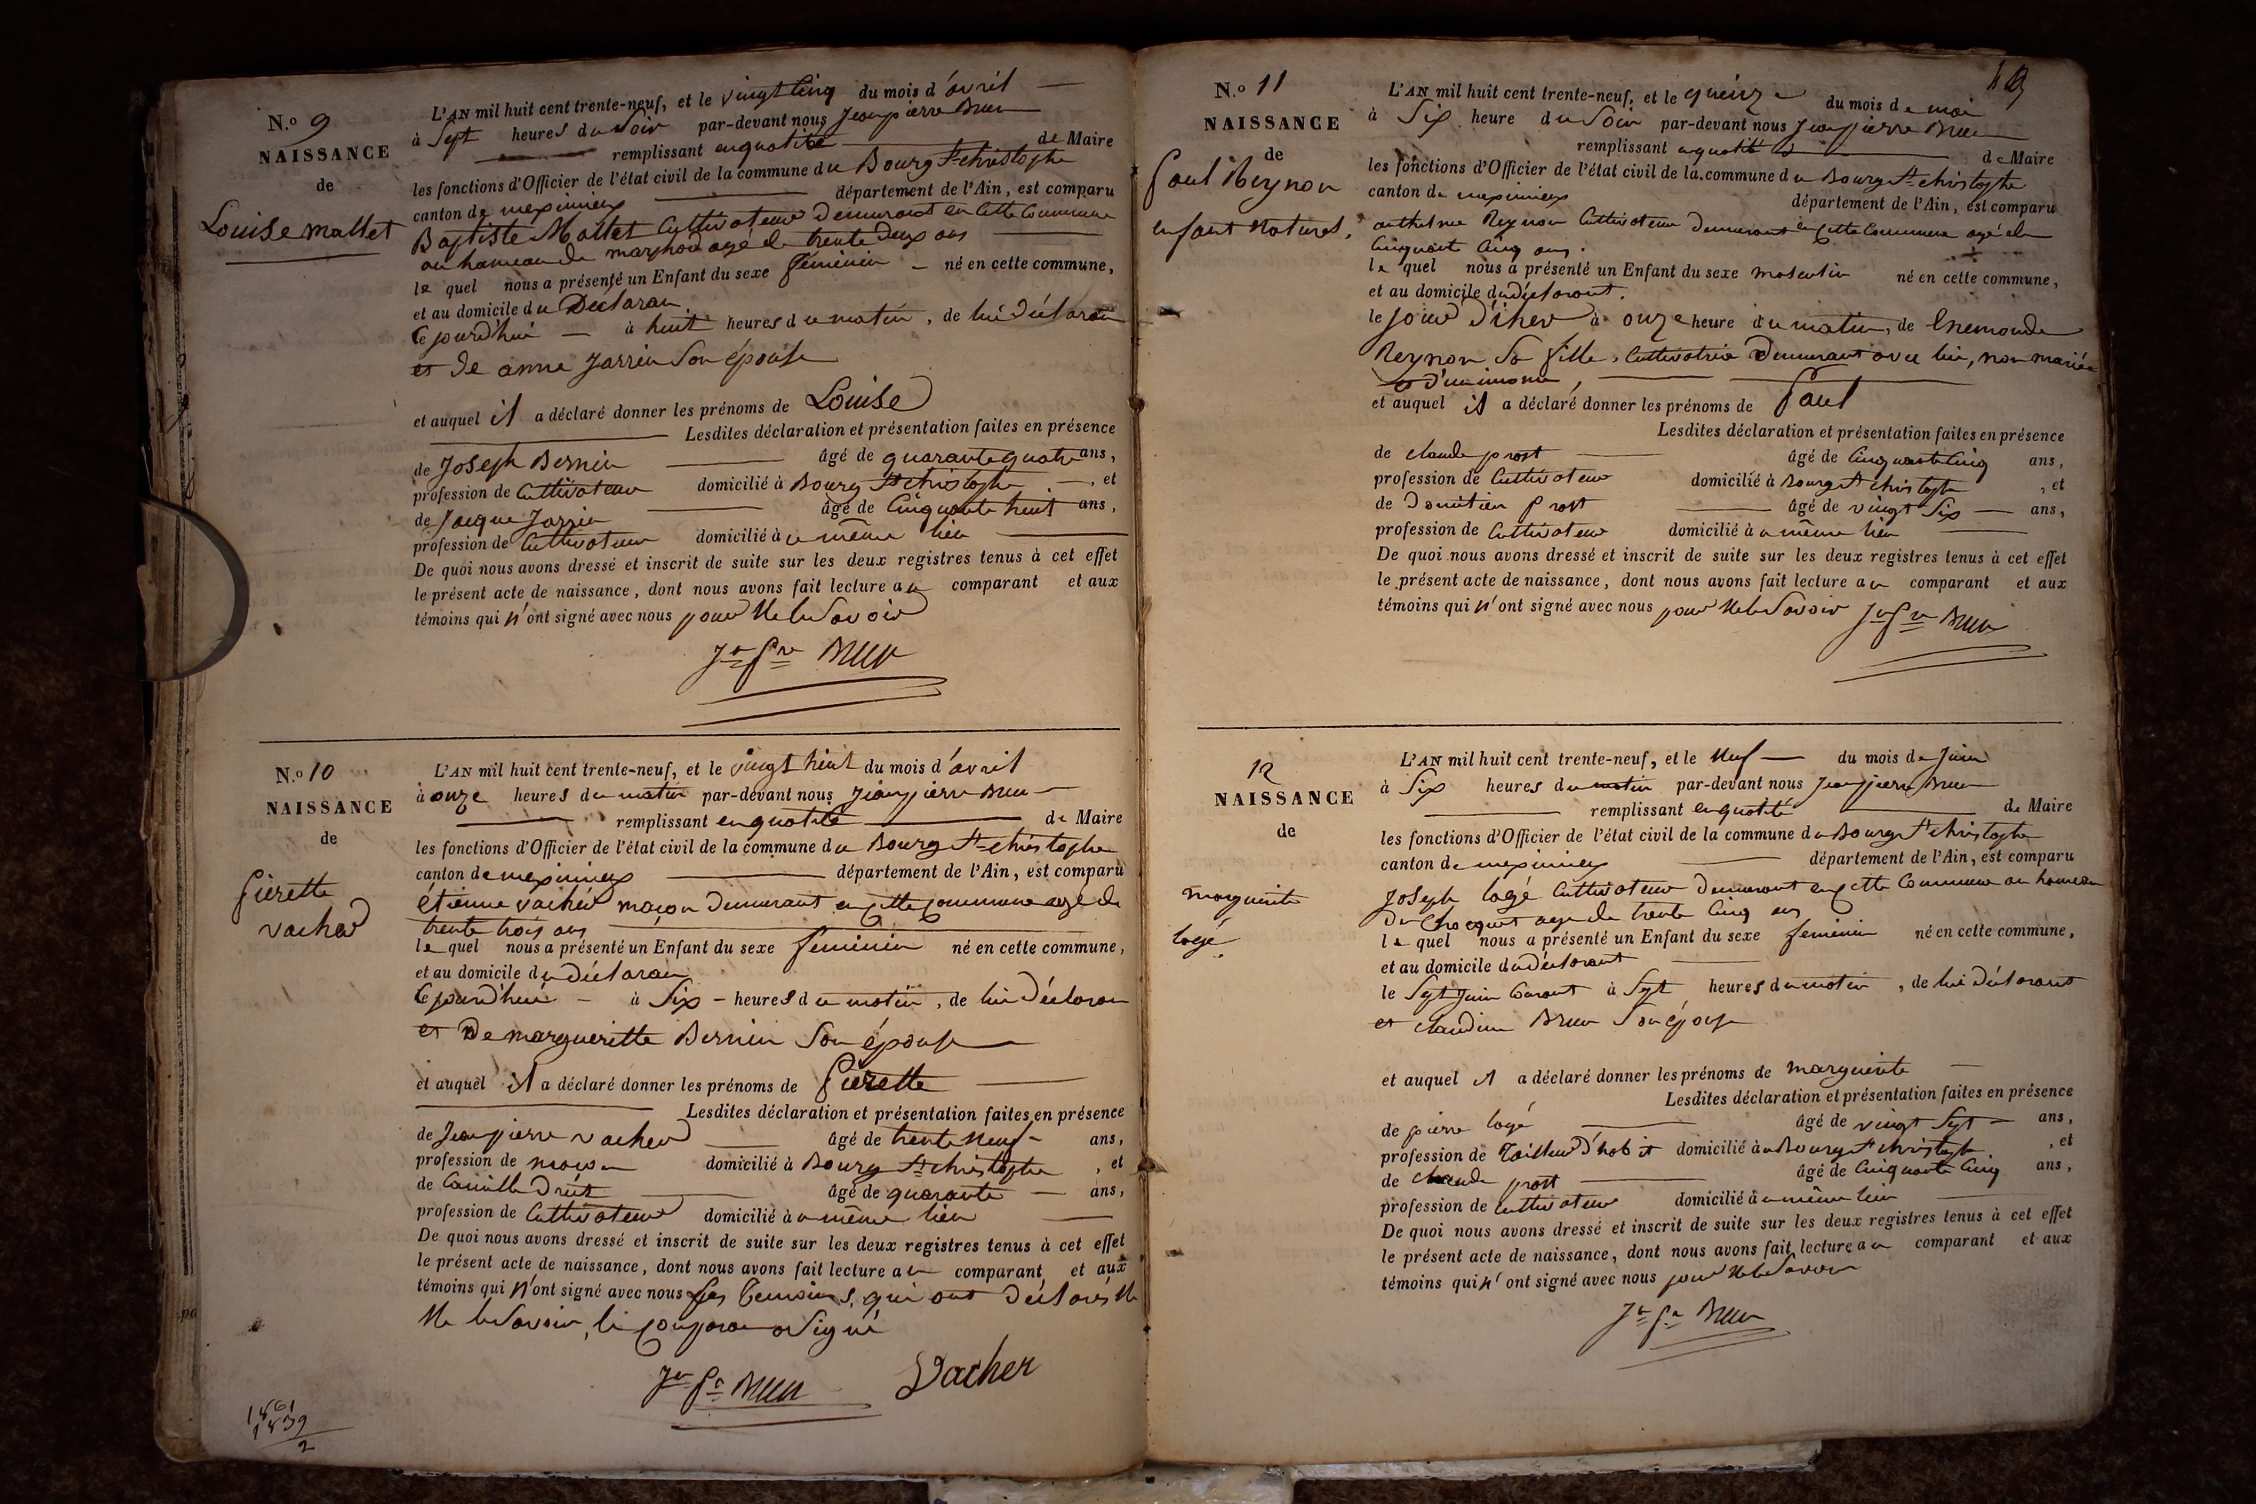 N.o 9
NAISSANCE
de
Louise mallet
L'AN mil huit cent trente-neuf, et le vingt Cinq du mois d'avril
à Sept heures du Soir par-devant nous Jeanpierre Brun
remplissant enqualité de Maire
les fonctions d'Officier de l'état civil de la commune du Bourg St christophe
canton de meximieux département de l'Ain, est comparu
Baptiste Mallet Cultivateur demeurant en Cette Commune
au hameau de agé de trente deux ans
le quel nous a présenté un Enfant du sexe féminin né en cette commune,
et au domicile du Déclaran
Cejourd'hui à huit heures du matin, de lui déclaran
et de anne Jarrin Son épouse
et auquel il a déclaré donner les prénoms de Louise
Lesdites déclaration et présentation faites en présence
de Joseph Bernin âgé de quarante quatre ans,
profession de Cultivateur domicilié à Bourg St christophe, et
de Jacque Jarrin âgé de Cinquante huit ans,
profession de Cultivateur domicilié au même lieu
De quoi nous avons dressé et inscrit de suite sur les deux registres tenus à cet effet
le présent acte de naissance, dont nous avons fait lecture au comparant et aux
témoins qui n'ont signé avec nous pour Ne le Savoir
Jn Pre Brun
N.o 10
NAISSANCE
de
Pierette
vacher
L'AN mil huit cent trente-neuf, et le vingt huit du mois d'avril
à onze heures du matin par-devant nous Jeanpierre Brun
remplissant enqualité de Maire
les fonctions d'Officier de l'état civil de la commune du Bourg St christophe
canton de meximieux département de l'Ain, est comparu
étienne vacher maçon demeurant en Cette Commune agé de
trente trois ans
le quel nous a présenté un Enfant du sexe feminin né en cette commune,
et au domicile du déclaran
Cejourd'hui à Six heures du matin, de lui déclaran
et De margueritte Bernin Son épouse
et auquel il a déclaré donner les prénoms de Pierette
Lesdites déclaration et présentation faites en présence
de Jeanpierre vacher âgé de trente Neuf ans,
profession de maçon domicilié à Bourg St christophe, et
de Camille Druet âgé de quarante ans,
profession de Cultivateur domicilié au même lieu
De quoi nous avons dressé et inscrit de suite sur les deux registres tenus à cet effet
le présent acte de naissance, dont nous avons fait lecture au comparant et aux
témoins qui n'ont signé avec nous Les Temoins, qui ont déclarés Ne
Ne le Savoir, le comparan a Signé
Jn Pre Brun Vacher
1861
1839
2
19
N.o 11
NAISSANCE
de
Paul Reynon
enfant Naturel,
L'AN mil huit cent trente-neuf, et le quinze du mois de mai
à Six heure du Soir par-devant nous Jeanpierre Brun
remplissant enqualité de Maire
les fonctions d'Officier de l'état civil de la commune du Bourg St christophe
canton de meximieux département de l'Ain, est comparu
anthelme Reynon Cultivateur demeurant en Cette Commune agé de
Cinquante Cinq ans.
le quel nous a présenté un Enfant du sexe masculin né en cette commune,
et au domicile du déclarant.
le jour d'hier à onze heure du matin, de Enemonde
Reynon Sa fille, Cultivatrice demeurant avec lui, non mariée
et d'un inconu,
et auquel il a déclaré donner les prénoms de Paul
Lesdites déclaration et présentation faites en présence
de claude prost âgé de Cinquante Cinq ans,
profession de Cultivateur domicilié à Bourg St christophe, et
de Domitien Prost âgé de vingt Six ans,
profession de Cultivateur domicilié au même lieu
De quoi nous avons dressé et inscrit de suite sur les deux registres tenus à cet effet
le présent acte de naissance, dont nous avons fait lecture au comparant et aux
témoins qui n'ont signé avec nous pour Ne le Savoir Jn Pre Brun
12
NAISSANCE
de
marguerite
logé
L'AN mil huit cent trente-neuf, et le Neuf du mois de Juin
à Six heures du matin par-devant nous Jeanpierre Brun
remplissant enqualité de Maire
les fonctions d'Officier de l'état civil de la commune du Bourg St christophe
canton de meximieux département de l'Ain, est comparu
Joseph logé Cultivateur demeurant en Cette Commune au hameau
du Chocquet agé de trente Cinq ans
le quel nous a présenté un Enfant du sexe feminin né en cette commune,
et au domicile du déclarant
le Sept Juin Courant à Sept heures du matin, de lui déclarant
et claudine Brun Son épouse
et auquel il a déclaré donner les prénoms de marguerite
Lesdites déclaration et présentation faites en présence
de pierre logé âgé de vingt Sept ans,
profession de Tailleur d'habit domicilié au Bourg St christophe, et
de claude prost âgé de Cinquante Cinq ans,
profession de Cultivateur domicilié au même lieu
De quoi nous avons dressé et inscrit de suite sur les deux registres tenus à cet effet
le présent acte de naissance, dont nous avons fait lecture au comparant et aux
témoins qui n'ont signé avec nous pour Ne le Savoir
Jn Pre Brun